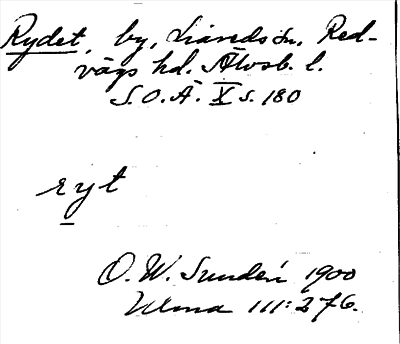 Rydet, by, Liareds sn. Red-
vägs hd. Älvsb. l.
S.O.Ä. X s. 180
ryt
O. W. Sundén 1900
Ulma 111:276.